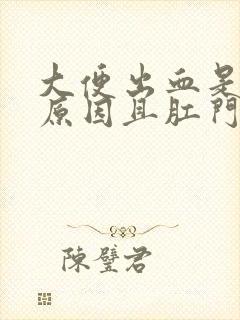 大便出血是
原因且肛門
陳璧君